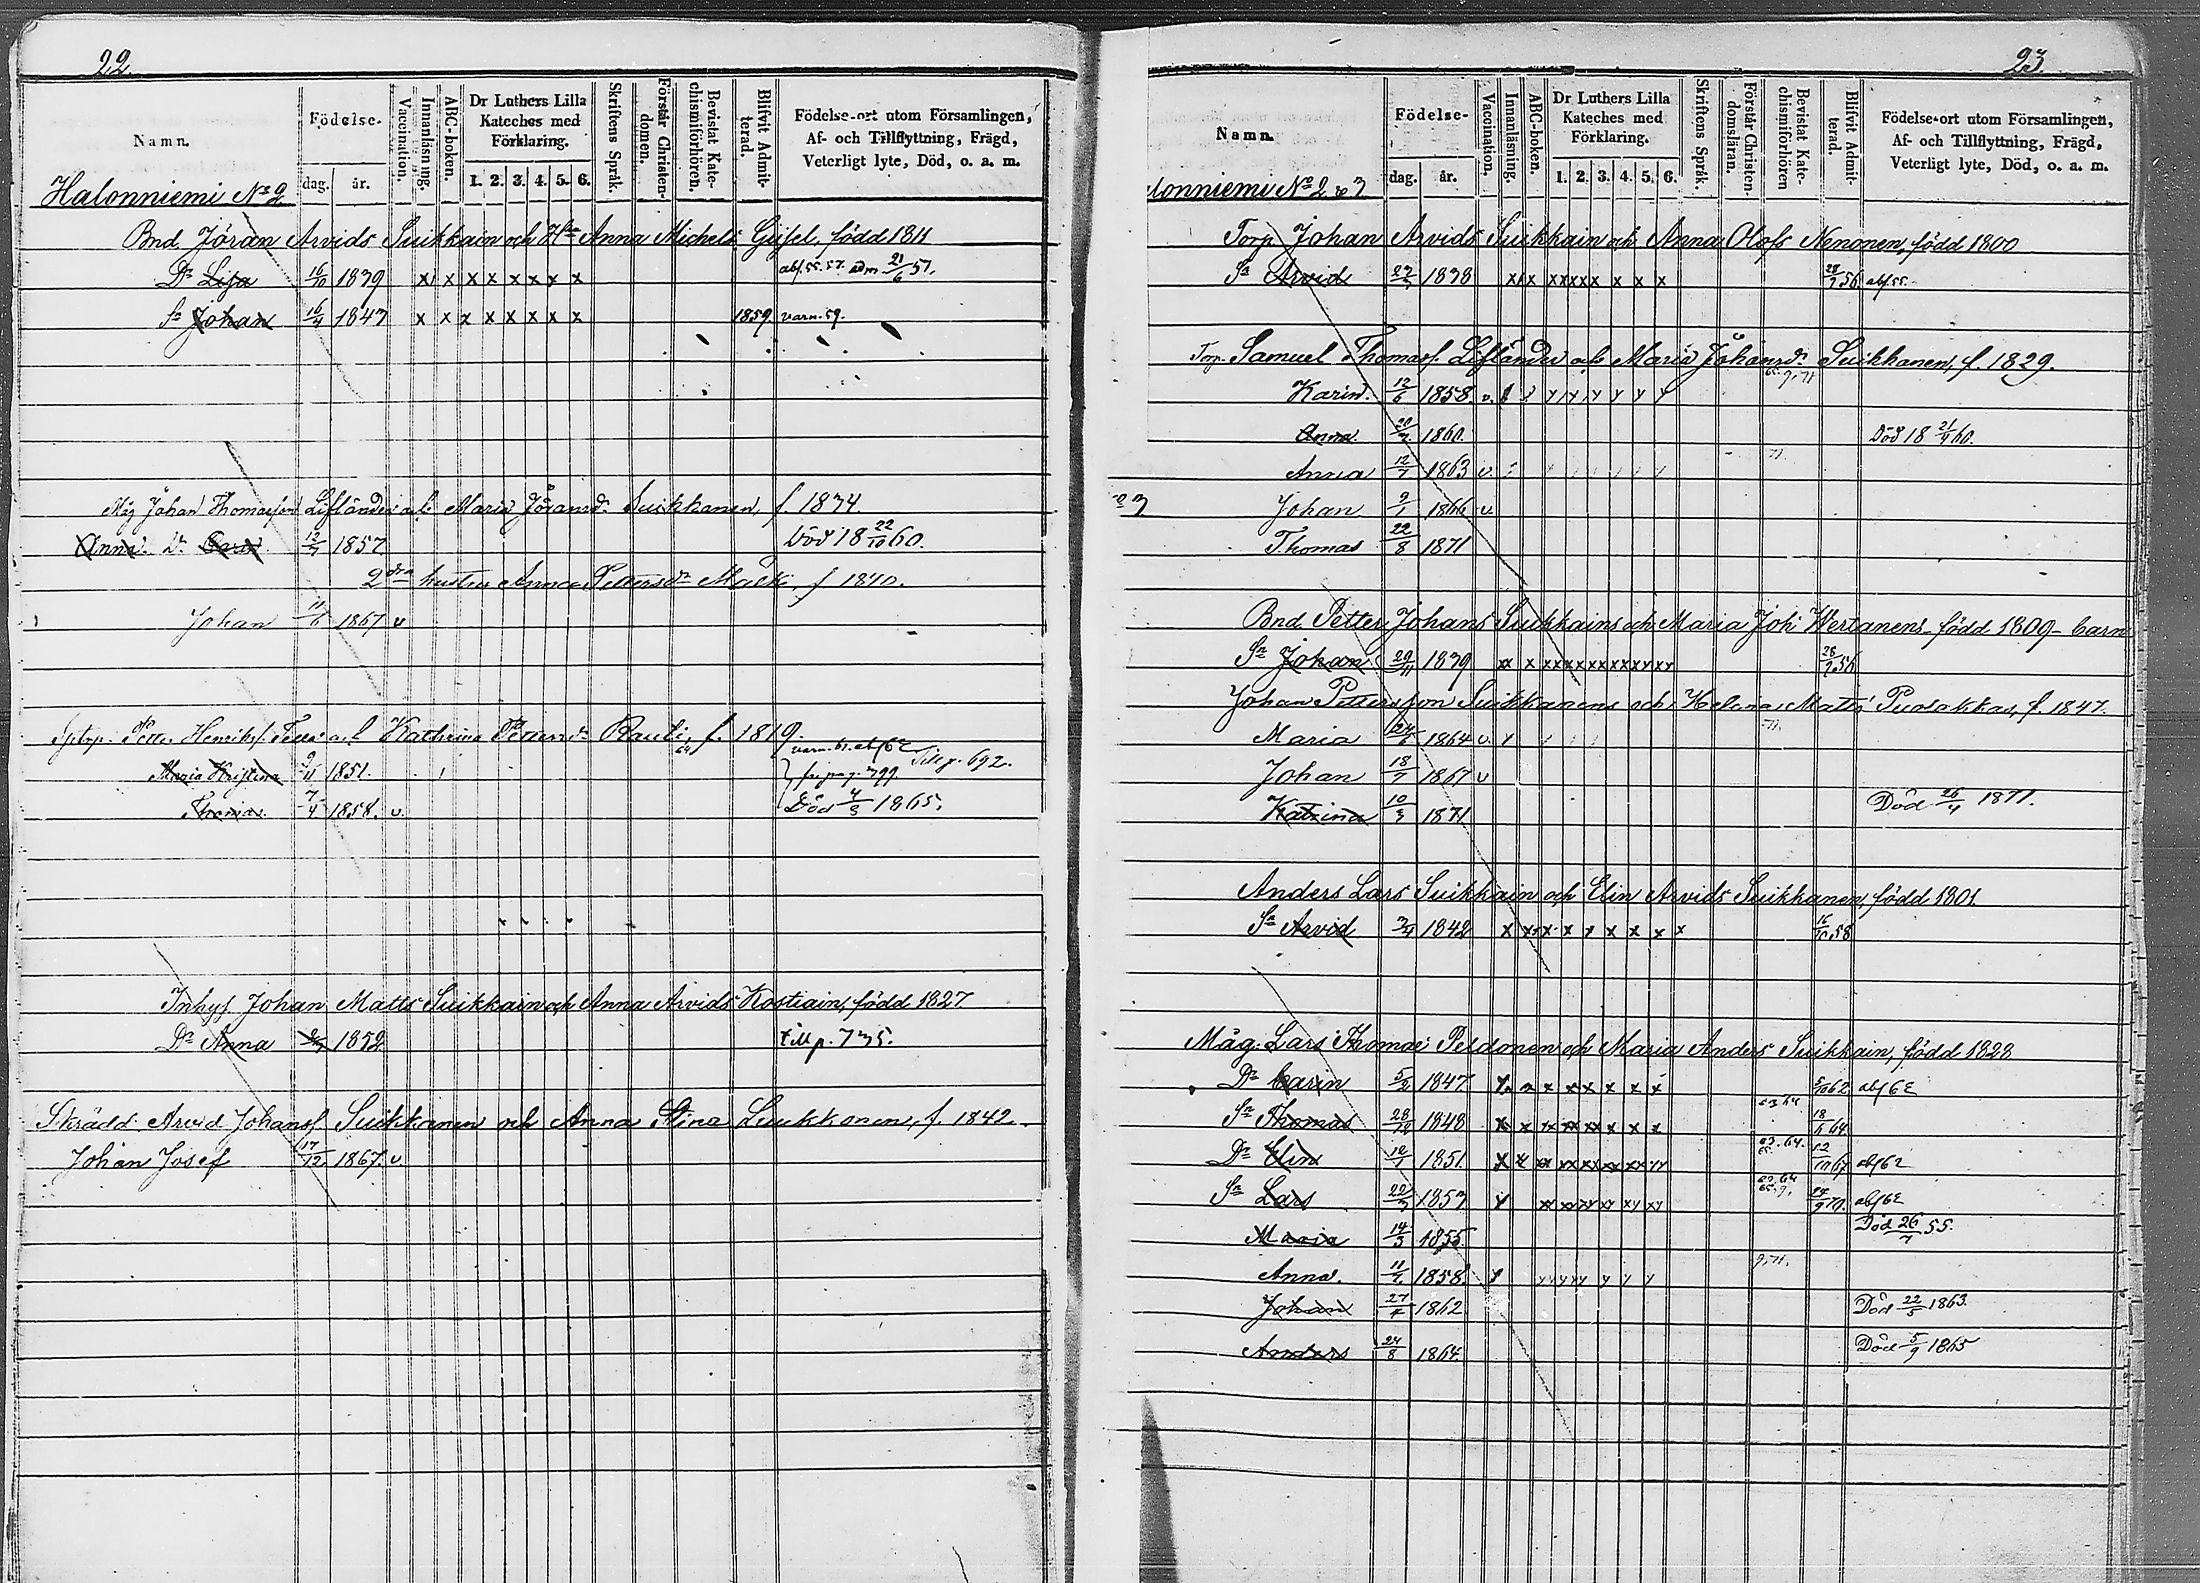 22.
Namn.
Födelse.
dag. år.
Vaccination.
Innanläsning.
ABC-boken.
Dr Luthers Lilla Kateches med Förklaring.
1. 2. 3. 4. 5. 6.
Skriftens Språk.
Förstår Christendomen.
Bevistat Katechismiförhören.
Blifvit Admitterad.
Födelse-ort utom Församlingen, Af- och Tillflyttning, Frägd, Veterligt lyte, Död, o. a. m.
Halonniemi No 2
Bnd Jöran Arvids Suikkain och Hu Anna Michels född 1811
Dr Lisa 16/10 1839 x x x x x x x x abs. 55. 57. adm 21/6 57.
Sn Johan 16/4 1847 x x x x x x x x 1859 varn. 59.
Måg Johan Thomasson Lifländer och Maria Jöransdr Suikkanen, f. 1834.
Anna Dr 12/7 1857 Död 18 22/10 60.
2dra hustru Anna Pettersdr f 1840.
Johan 11/6 1867 v
Petter Henriks. Kathrina Pettersdr Rauti, f. 1819.
varn. 61. abs 62 Till p. 692.
Maria Kristina 9/11 1851. fr. pag. 399.
Thomas 7/4 1858. v. Död 4/3 1865.
Inhys Johan Matts Suikkain och Anna Arvids Kostiain, född 1827
Dr Anna 1852 till p. 735.
Skrädd. Arvid Johans. Suikkanen och Anna Stina Luukkonen, f. 1842.
Johan Josef 17/12 1867. v.
23.
Namn.
Födelse-
dag. år.
Vaccination.
Innanläsning.
ABC-boken.
Dr Luthers Lilla Kateches med Förklaring.
1. 2. 3. 4. 5. 6.
Skriftens Språk.
Förstår Christendomsläran.
Bevistat Katechismiförhören
Blifvit Admitterad.
Födelse-ort utom Församlingen, Af- och Tillflyttning, Frägd, Veterligt lyte, Död, o. a. m.
lonniemi No 2 o 3
Torp Johan Arvids Suikkain och Anna Olofs Nenonen, född 1800
Sn Arvid 1838 56 abs. 55.
Torp. Samuel Thomass. Lifländer och Maria Johansdr Suikkanen, f. 1829.
Karin 12/6 1858. v.
Anna 1860. Död 18 21/9 60.
Anna 12/7 1863 v.
o 3 Johan 9/1 1866 v
Thomas 22/8 1871
Bnd Petter Johans Suikkains och Maria Joh Wertanens född 1809 - barn
Sn Johan 29/11 1839 28/9 56
Johan Pettersson Suikkanens och Helena Matts Puolakkas, f. 1847.
Maria 1864 v.
Johan 18/7 1867 v
Katrina 10/3 1871 Död 26/4 1871.
Anders Lars Suikkain och Elin Arvids Suikkanen, född 1801
Sn Arvid 3/4 1842 x x x x x x x x x 16/10 58
Måg: Lars Thomas Peldonen och Maria Anders Suikkain, född 1828
Dr Carin 5/2 1847 62 abs 62
Sn Thomas 28/12 1848 63 64. 18/6 64
Dr Elin 12/1 1851. 63. 64. 65. abs 62
Sn Lars 1853 63. 64 abs 62
Maria 14/3 1855. Död 26/7 55.
Anna. 1858.
Johan 27/4 1862. Död 22/5 1863.
Anders 24/8 1864. Död 5/9 1865